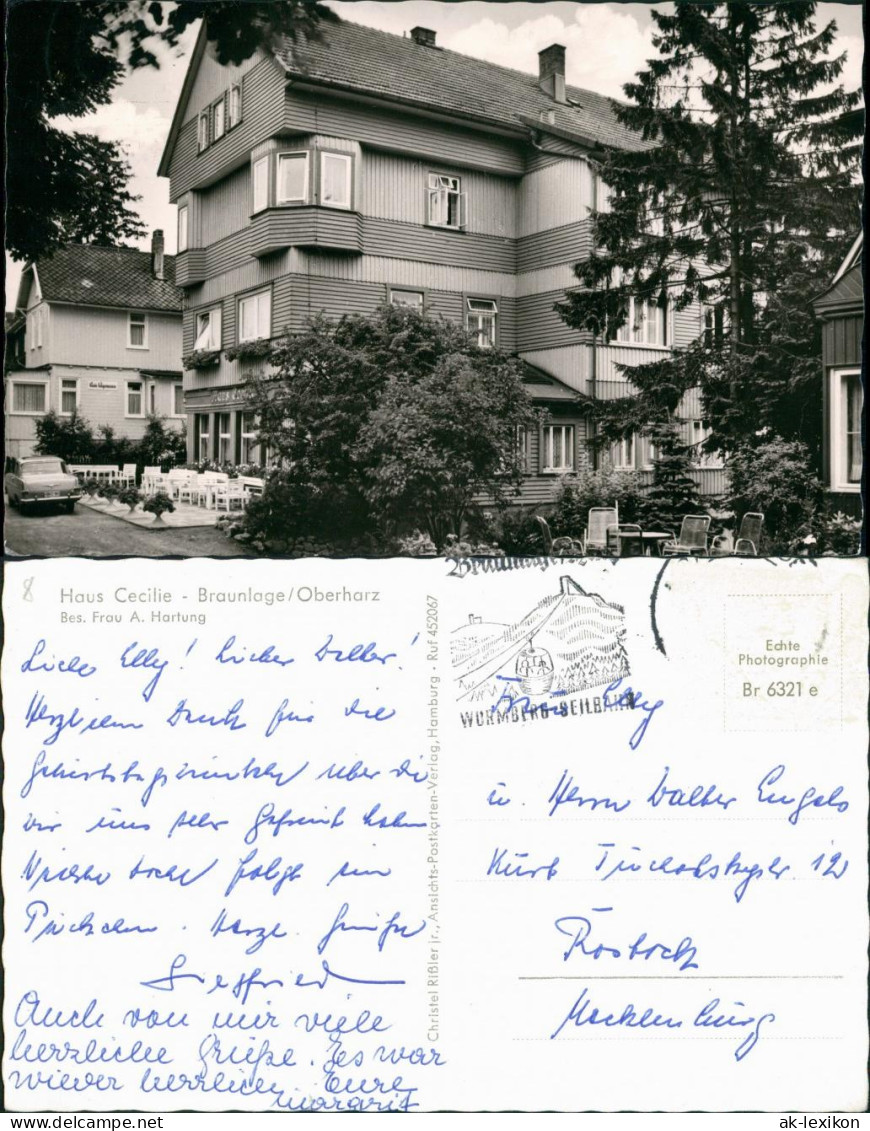 Haus Cecilie - Braunlage/Oberharz
Bes. Frau A. Hartung
Liebe Elly! Lieber Walter!
Herzlichen Dank für die
Geburtstagswünsche über die
wir uns sehr gefreut haben
Nächste Woche folgt ein
Päckchen. Herzl. Grüße
Siegfried
Auch von mir viele
herzliche Grüße. Es war
wieder herrlich Eure
Margrit
Christel Rißler jr., Ansichts-Postkarten-Verlag, Hamburg · Ruf 452067
WURMBERG-SEILBAHN
Echte
Photographie
Br 6321 e
Elly
u. Herrn Walter Engels
Kurt Tucholskystr. 12
Rostock
Mecklenburg
© ak-ansichtskarten.de
ak-lexikon